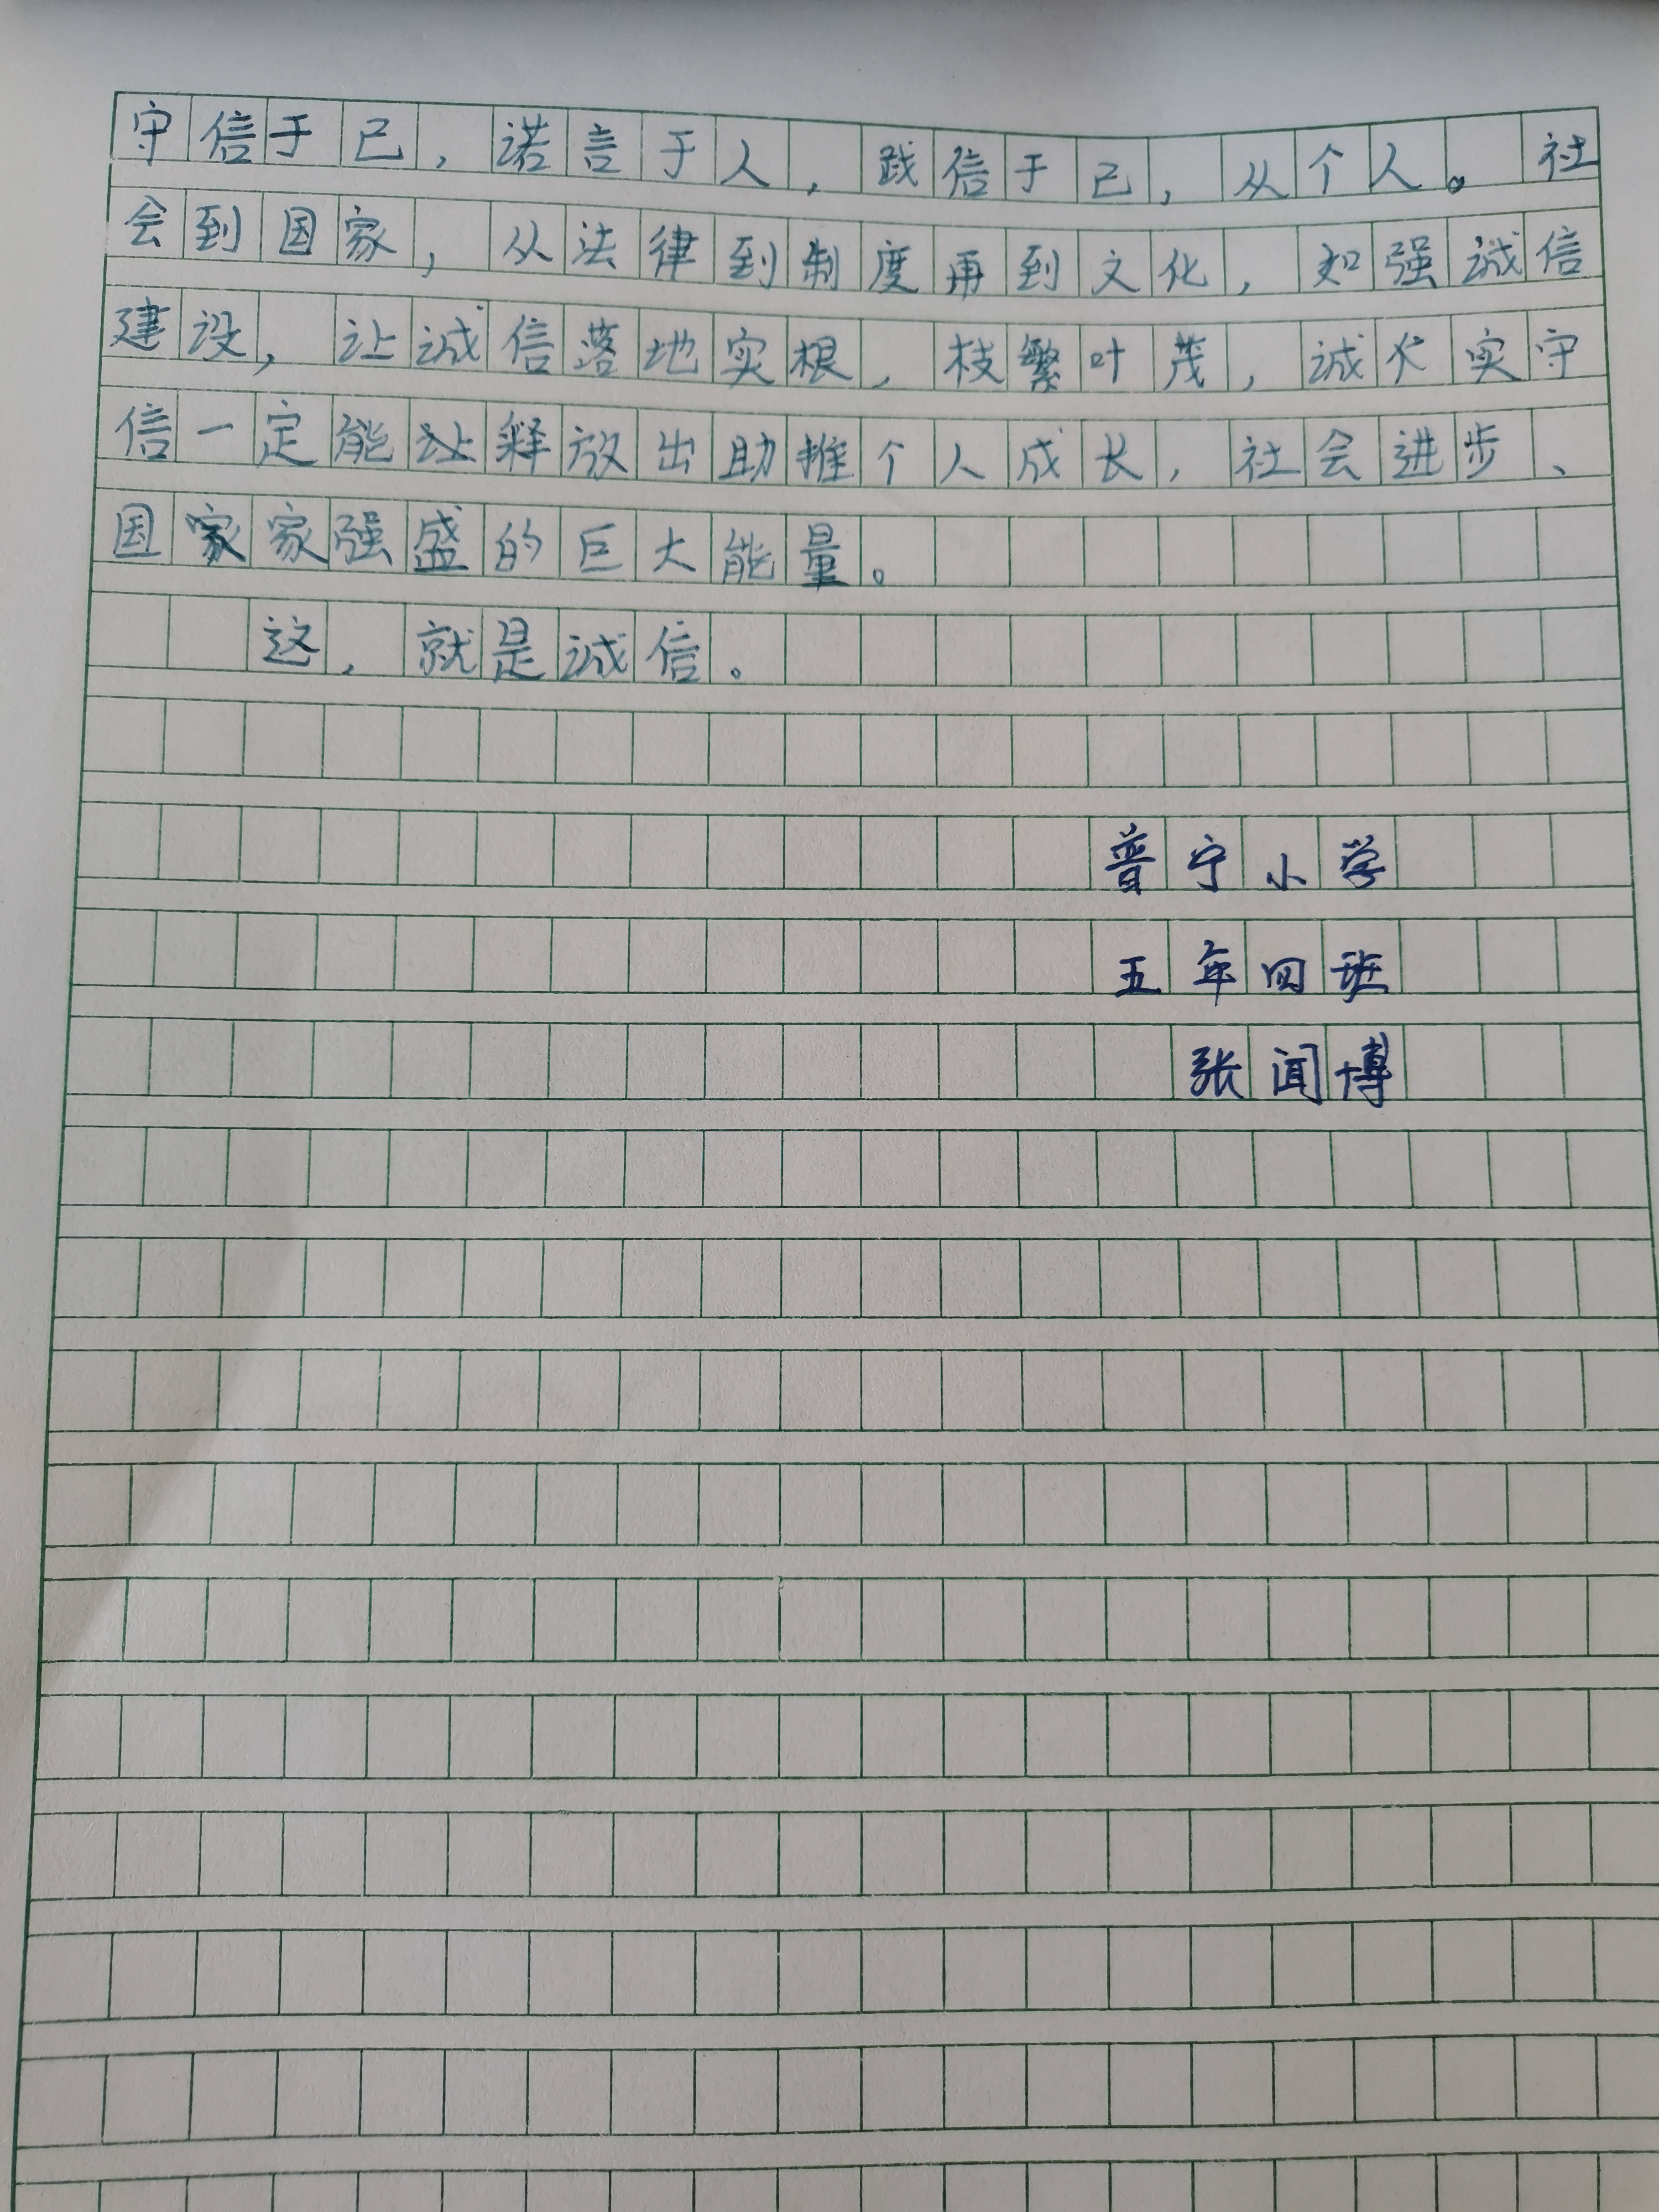 守信于已，诺言于人，践信于已，从个人。社
会到国家，从法律到制度再到文化，如强诚信
建设，让诚信落地实根，枝繁叶茂，诚实守
信一定能让释放出助推个人成长，社会进步、
国家家强盛的巨大能量。
这，就是诚信。
普宁小学
五年四班
张闻博